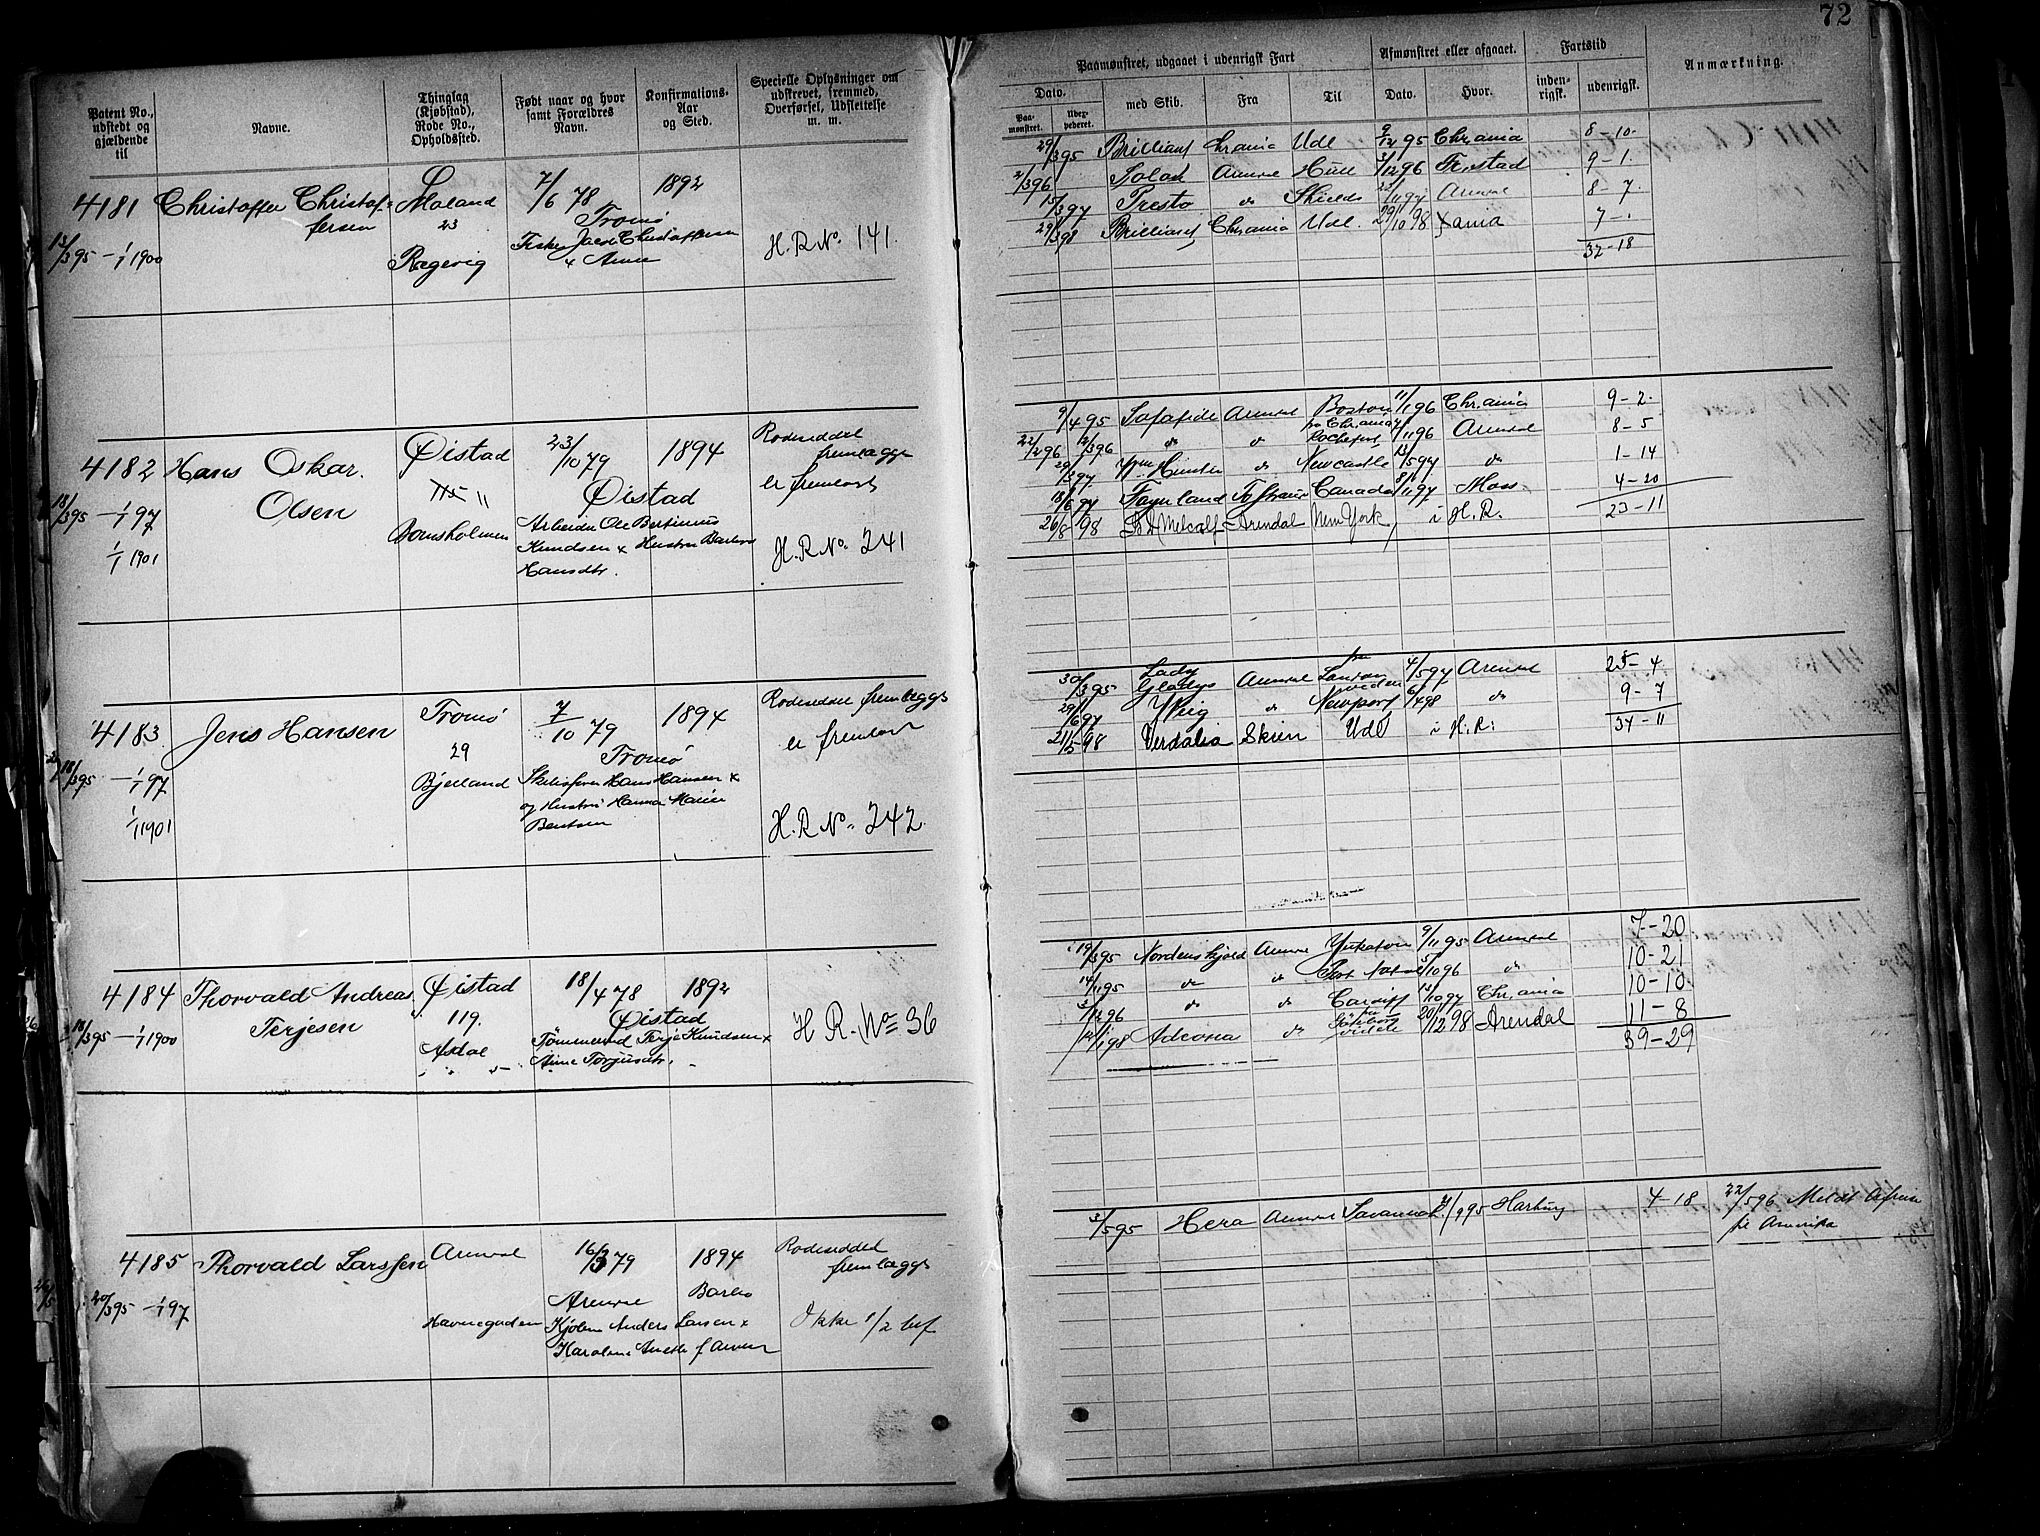 72
Patent No., udstedt og gjældende til
Navne.
Thinglag (Kjøbstad), Rode No., Opholdssted.
Født naar og hvor samt Forældres Navn.
Konfirmations-Aar og Sted.
Specielle Oplysninger om udskrevet, fremmed, Overførsel, Udslettelse m. m.
Paamønstret, udgaaet i udenrigsk Fart
Dato.
Paa-mønstret.
Udex-pederet.
med Skib.
Fra
Til
Afmønstret eller afgaaet.
Dato.
Hvor.
Fartstid
inden-rigsk.
udenrigsk.
Anmærkning.
4181 Christoffer Christof- Moland 7/6 78 1892
fersen 23 Tromø
13/3 95 – 1/1 1900 Fisker Jacob Christoffersen
Rægevig & Anne H. R No. 141.
29/3 95 Brilliant Chrania Udl 9/12 95 Chrania 8–10
2/3 96 Solon Arendal Hull 3/12 96 Frstad 9–1
15/3 97 Presto do Shields 22/11 97 Arendal 8–7
29/3 98 Brilliant Chrania Udl. 29/10 98 Xania 7–
32–18
4182 Hans Oskar Øistad 23/10 79 1894 Rodeseddel fremlægges
Olsen 115 Øistad er fremlagt
18/3 95 – 1/1 97
Arbeider Ole Bertinius
1/1 1901 Knudsen & Hustru Barbro
Hansdtr. H. R No. 241
9/4 95 Arendal Boston 11/1 96 Chrania 9–2
22/2 96 12/3 96 do do Rochefort 11 96 Arendal 8–5
29/3 97 Wm Hunter do Newcastle 13/5 97 do 1–14
18/6 97 Canada 8/11 97 Moss 4–20
26/8 98 Metcalf Arendal New York i H. R. 23–11
4183 Jens Hansen Tromø 7/10 79 1894 Rodeseddel fremlægges
29 Tromø er fremlagt
18/3 95 – 1/1 97 Bjelland Hans Hansen &
og Hustru Hanna Marie
1/1 1901 H. R No. 242.
30/3 95 Lady Gladys Arendal 4/5 97 Arendal 25–4
29/6 97 do Newport 6/4 98 do 9–7
21/5 98 Verdalia Skien Udl i H. R. 34–11
4184 Thorvald Andreas Øistad 18/4 78 1892
Terjesen 119. Øistad H R. No 36
18/3 95 – 1/1 1900 Tømmermd Terje Knudsen &
Asdal Anne Torjusdtr.
19/3 95 Nordenskjold Arendal Yukatan 9/11 95 Arendal 7–20
14/11 95 do do Port Natal 5/10 96 do 10–21
3/12 96 do do Cardiff 13/10 97 Chrania 10–10
12/1 98 Adeona do Göteborg 20/12 98 Arendal 11–8
39–29
4185 Thorvald Larssen Arendal 16/3 79 1894 Rodeseddel fremlægges
20/3 95 – 1/1 97 Arendal Barbo
Havnegaden Kjøbm Anders Larsen & Ikke 1/2 bef
Karoline Anette f. Arvesen
3/5 95 Hera Arendal Savannah /9 95 Harburg 4–18 22/5 96 Meldt Afreise
til Amerika